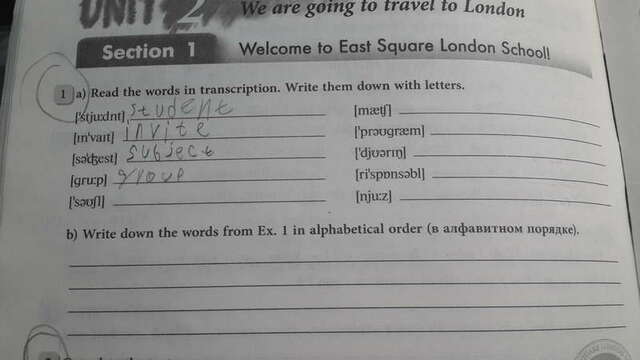 UNIT 2 We are going to travel to London
Section 1 Welcome to East Square London School!
1 a) Read the words in transcription. Write them down with letters.
['stju:dnt] student
[ɪn'vaɪt] invite
[sə'ʤest] subject
[gru:p] group
['səʊʃl]
[mæʧ]
['prəʊgræm]
['djʊərɪŋ]
[ri'spɒnsəbl]
[nju:z]
b) Write down the words from Ex. 1 in alphabetical order (в алфавитном порядке).